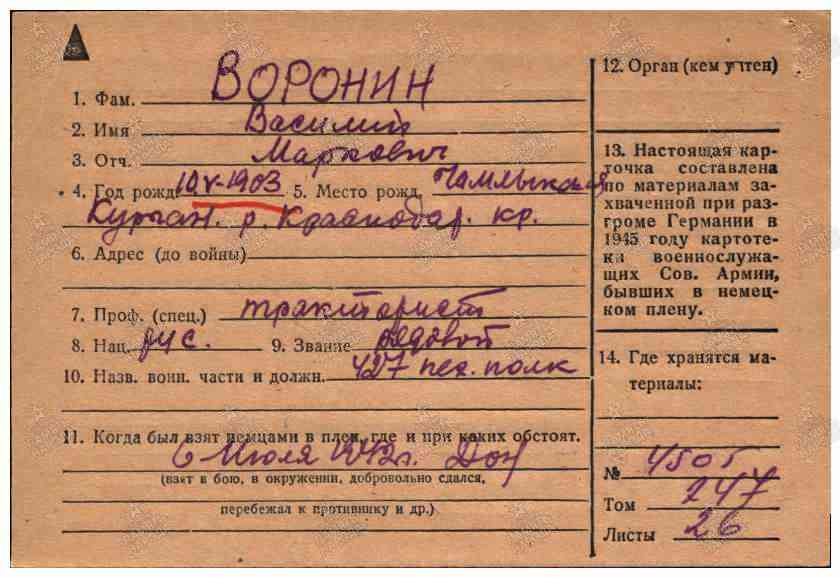 1. Фам. ВОРОНИН
2. Имя Василий
3. Отч. Маркович
4. Год рожд. 10.V-1903 5. Место рожд. Чамлыкская
Курган. р. Краснодар. кр.
6. Адрес (до войны)
7. Проф. (спец.) тракторист
8. Нац. рус. 9. Звание рядовой
10. Назв. воин. части и должн. 427 пех. полк
11. Когда был взят немцами в плен, где и при каких обстоят.
6 Июля 1942г. Дон
(взят в бою, в окружении, добровольно сдался,
перебежал к противнику и др.)
12. Орган (кем учтен)
13. Настоящая кар-
точка составлена
по материалам за-
хваченной при раз-
громе Германии в
1945 году картоте-
ки военнослужа-
щих Сов. Армии,
бывших в немец-
ком плену.
14. Где хранятся ма-
териалы:
№ 4505
Том 247
Листы 26